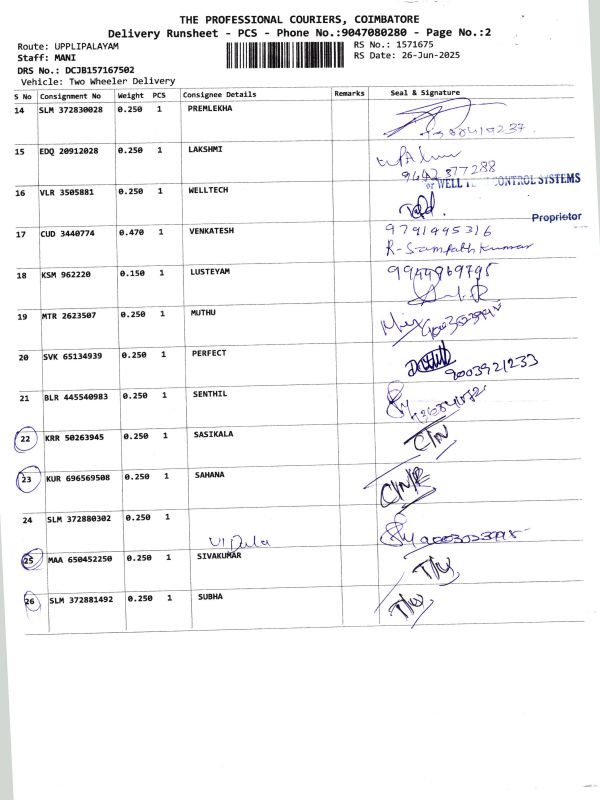 THE PROFESSIONAL COURIERS, COIMBATORE
Delivery Runsheet - PCS - Phone No.:9047080280 - Page No.:2
Route: UPPLIPALAYAM RS No.: 1571675
Staff: MANI RS Date: 26-Jun-2025
DRS No.: DCJB157167502
Vehicle: Two Wheeler Delivery
S No Consignment No Weight PCS Consignee Details Remarks Seal & Signature
14 SLM 372830028 0.250 1 PREMLEKHA
15 EDQ 20912028 0.250 1 LAKSHMI
9442377288
16 VLR 3505881 0.250 1 WELLTECH
CONTROL SYSTEMS
Proprietor
17 CUD 3440774 0.470 1 VENKATESH 9791495316
R-Sampath Kumar
18 KSM 962220 0.150 1 LUSTEYAM 9944969795
19 MTR 2623507 0.250 1 MUTHU
20 SVK 65134939 0.250 1 PERFECT
9003921233
21 BLR 445540983 0.250 1 SENTHIL
22 KRR 50263945 0.250 1 SASIKALA C/N
23 KUR 696569508 0.250 1 SAHANA
C/N/R
24 SLM 372880302 0.250 1
25 MAA 650452250 0.250 1 SIVAKUMAR
26 SLM 372881492 0.250 1 SUBHA